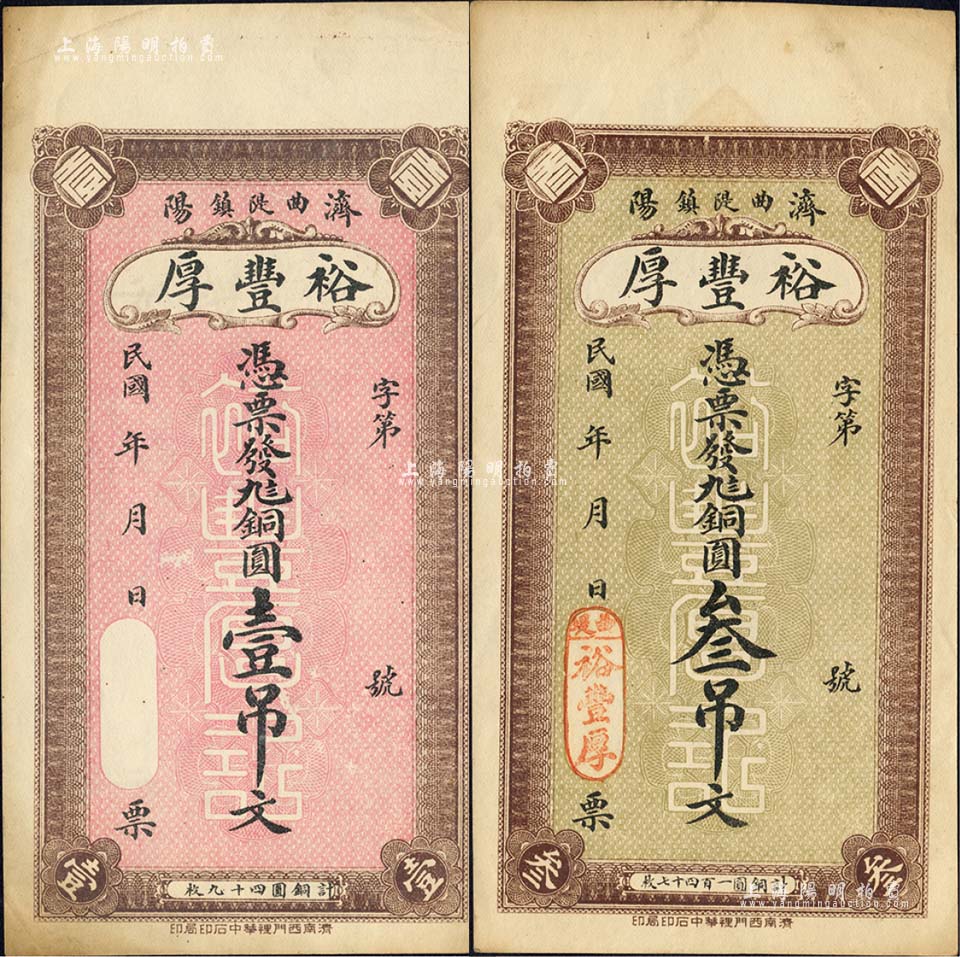 上海陽明拍賣
www.yangmingauction.com
濟陽
曲隄鎮
裕豐厚
字第
號
憑票發九八銅圓壹吊文
民國 年 月 日
票
壹
壹
計銅圓四十九枚
濟南西門裡華中石印局印
濟陽
曲隄鎮
裕豐厚
字第
號
憑票發九八銅圓叁吊文
民國 年 月 日
曲隄
裕豐厚
票
叁
叁
計銅圓一百四十七枚
濟南西門裡華中石印局印
上海陽明拍賣
www.yangmingauction.com
上海陽明拍賣
www.yangmingauction.com